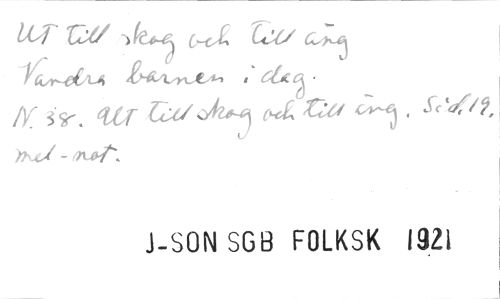 Ut till skog och till äng
Vandra barnen i dag.
N. 38. Ut till skog och till äng. Sid. 19.
mel-not.
J-SON SGB FOLKSK 1921